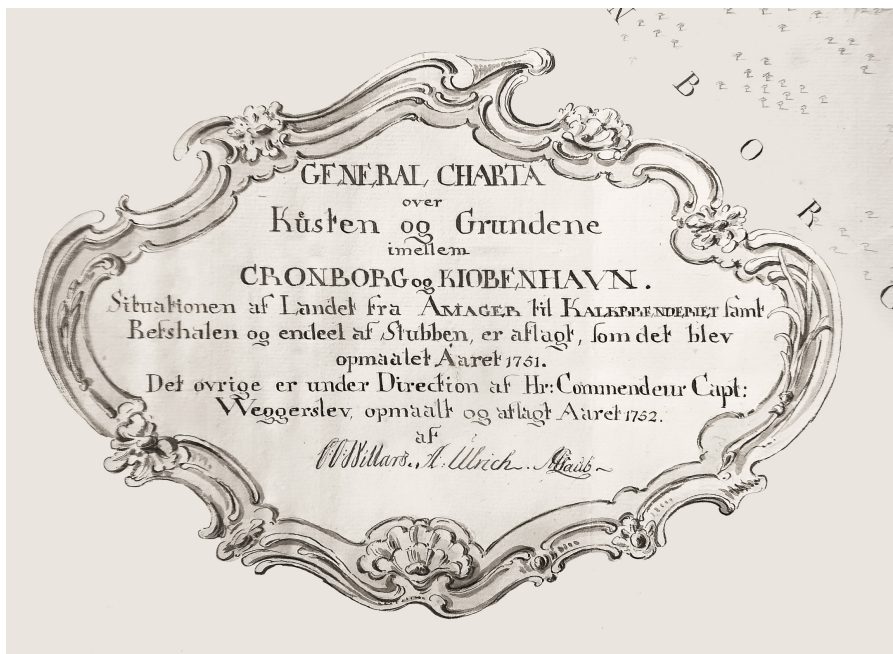 N
B
O
R
GENERAL CHARTA
over
Kůsten og Grundene
imellem
CRONBORG og KIOBENHAVN.
Situationen af Landet fra AMAGER til KALKBRENDERIET samt
Refshalen og endeel af Stubben, er aflagt, som det blev
opmaalet Aaret 1751.
Det øvrige er under Direction af Hr: Commendeur Capt:
Weggerslev, opmaalt og aflagt Aaret 1752.
af
A: Ulrich.